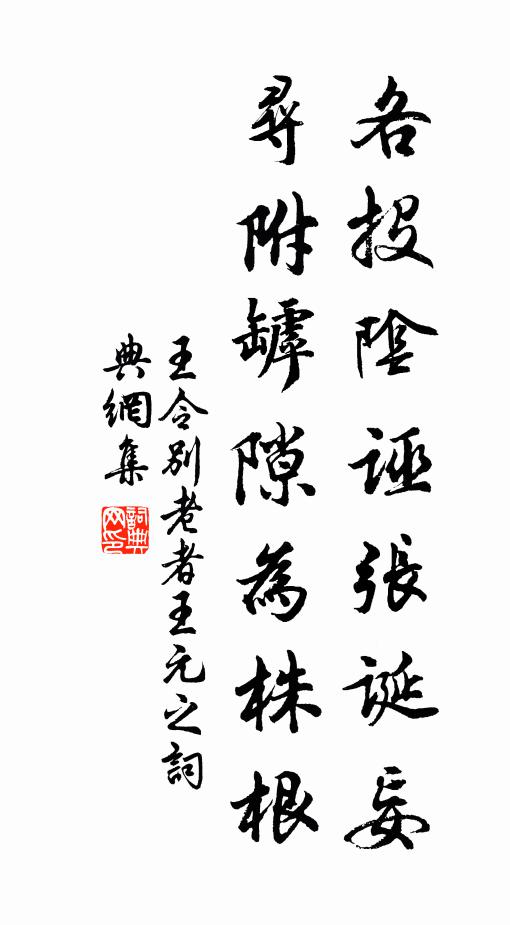 各投陰誣張誕妄
尋附罅隙為株根
王令別老者王元之詞
典網集
詞典
网印